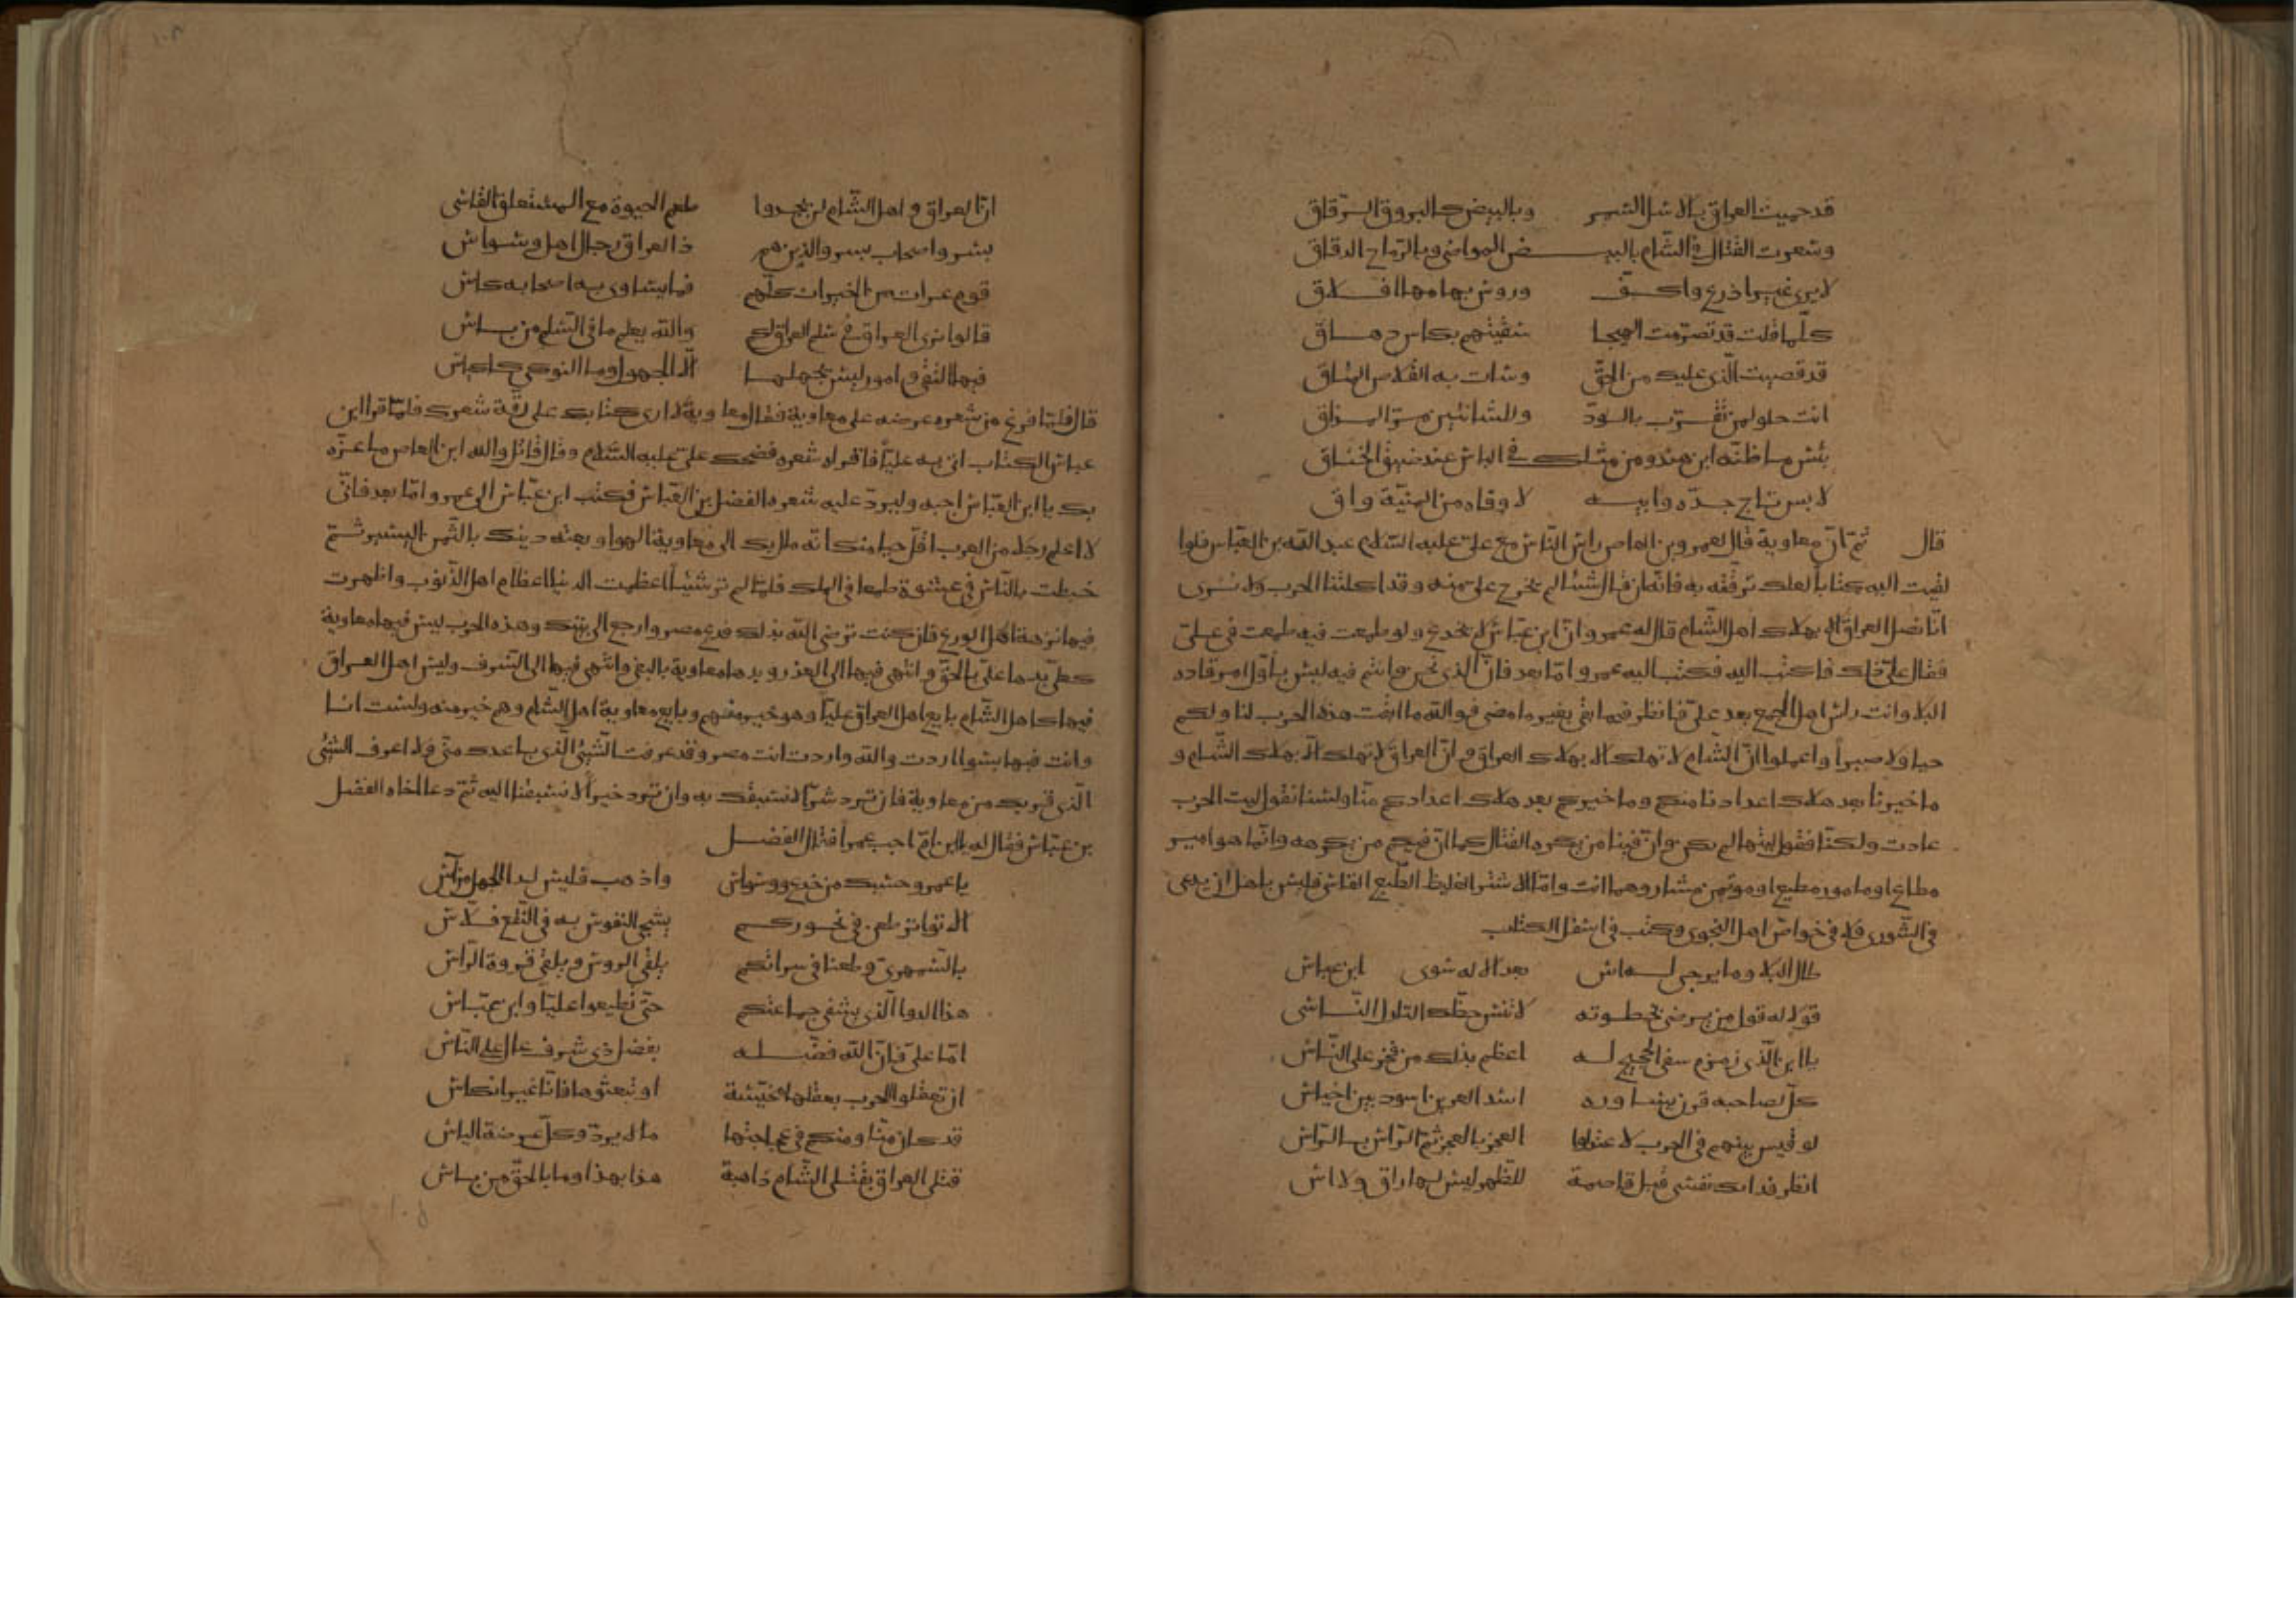 قد حميت العراق بالاسل السمر وبالبيض كالبروق الرقاق
وسعرت القتال في الشام بالبيـض المواضي وبالرماح الدقاق
لا يرى غير اذرع واكف وروس بهامها افلاق
كلما قلت قد تصرمت الهيجا سقيتهم بكاس دهاق
قد قضيت الذي عليك من الحق وسارت به القلاص المناق
انت حلو لمن تقرب بالود وللشانئين مر المذاق
بئس ما ظنه ابن هند ومن مثلك في الباس عند ضيق الخناق
لابس تاج جده وابيه لا وقاه من المنية واق
قال ثم ان معاوية قال لعمرو بن العاص راس الناس مع علي عليه السلام عبد الله بن العباس فلوا
لقيت اليه كتابا لعلك ترققه به فانه ان قال شيئا لم يخرج علي منه وقد اكلتنا الحرب ولا نرى
انا نصل العراق الا بهلاك اهل الشام قال له عمرو ان ابن عباس لا يخدع ولو طمعت فيه طمعت في علي
فقال علي ذلك فاكتب اليه فكتب اليه عمرو اما بعد فان الذي نحن وانتم فيه ليس باول امر قاده
البلا وانت راس اهل الجمع بعد علي فانظر فيما بقي بغير ما مضى فوالله ما ابقت هذه الحرب لنا ولكم
حيا ولا صبرا واعلموا ان الشام لا تهلك الا بهلاك العراق وان العراق لا تهلك الا بهلاك الشام و
ما خيرنا بعد هلاك اعدادنا منكم وما خيركم بعد هلاك اعدادكم منا ولسنا نقول ليت الحرب
عادت ولكنا نقول ليتها لم تكن وان فينا من يكره القتال كما ان فيكم من يكرهه وانما هو امير
مطاع او مامور مطيع او موتمن مشاور وهو انت واما الاشتر الغليظ الطبع القاس فليس باهل ان يدعى
في الشورى ولا في خواص اهل النجوى وكتب في اسفل الكتاب
طال البلا وما يرجى له اس بعد الاله سوى ابن عباس
قولا له قول من يرضى بخطوته لا تنس حظك ان التارك الناسي
يا ابن الذي زمزم سقي الحجيج له اعظم بذلك من فخر على الناس
كل لصاحبه قرن يساوره اسد العرين اسود بين اخياس
لو قيس بينهم في الحرب لاعتدلوا العجز بالعجز ثم الراس بالراس
انظر فدا لك نفسي قبل قاصمة للظهر ليس لها راق ولا اس
ان العراق واهل الشام لن يجدوا طعم الحيوة مع المستغلق القاسي
بسر واصحاب بسر والذين هم ذا العراق رجال اهل وسواس
قوم عراة من الخيرات كلهم فما يساوى به اصحابه كاس
قالوا نرى العراق في سلم العراق لكم والله يعلم ما في السلم من باس
فيها التقى وامور ليس يجهلها الا الجهول وما النوكى كاكياس
قال فلما فرغ من شعره عرضه على معاوية فقال معاوية لا ارى كتابك على رقة شعرك فلما قرا ابن
عباس الكتاب اتى به عليا فاقراه شعره فضحك علي عليه السلام وقال قاتل والله ابن العاص ما غره
بك يا ابن العباس اجبه وليرد عليه شعره الفضل بن العباس فكتب ابن عباس الى عمرو اما بعد فاني
لا اعلم رجلا من العرب اقل حيا منك انه مال بك الى معاوية الهوا وبعته دينك بالثمن اليسير ثم
خبطت بالناس في عشوة طمعا في الملك فلما لم تر شيئا اعظمت الدنيا اعظام اهل الذنوب واظهرت
فيها نزهة اهل الورع فان كنت ترضى الله بذلك فدع مصر وارجع الى بيتك وهذه الحرب ليس فيها معاوية
كعلي بداها علي بالحق وانتهى فيها الى العذر وبدها معاوية بالبغي وانتهى فيها الى السرف وليس اهل العراق
فيها كاهل الشام بايع اهل العراق عليا وهو خير منهم وبايع معاوية اهل الشام وهم خير منه ولست انا
وانت فيها بسوا اردت والله واردت انت مصر وقد عرفت الشيئ الذي باعدك مني ولا اعرف الشيئ
الذي قربك من معاوية فان ترد شرا لا نسبقك به وان ترد خيرا لا تسبقنا اليه ثم دعا اخاه الفضل
بن عباس فقال له يا ابن ام اجب عمرا فقال الفضل
يا عمرو حسبك من خدع ووسواس واذهب فليس لدا الجهل من آس
الا تواتر طعن في نحوركم يشجي النفوس به في النقع فلاس
بالسمهري وطعنا في سراتكم يلقى الروس ويلقى فروة الراس
هذا الدوا الذي يشفي جماعتكم حتى تطيعوا عليا وابن عباس
اما علي فان الله فضله بفضل ذي شرف عال على الناس
ان تعقلوا الحرب نعقلها مخيسة او تبعثوها فانا غير انكاس
قد كان منا ومنكم في عجاجتها ما لا يرد وكل عرضة الباس
قتلى العراق بقتلى الشام ذاهبة هذا بهذا وما بالحق من باس